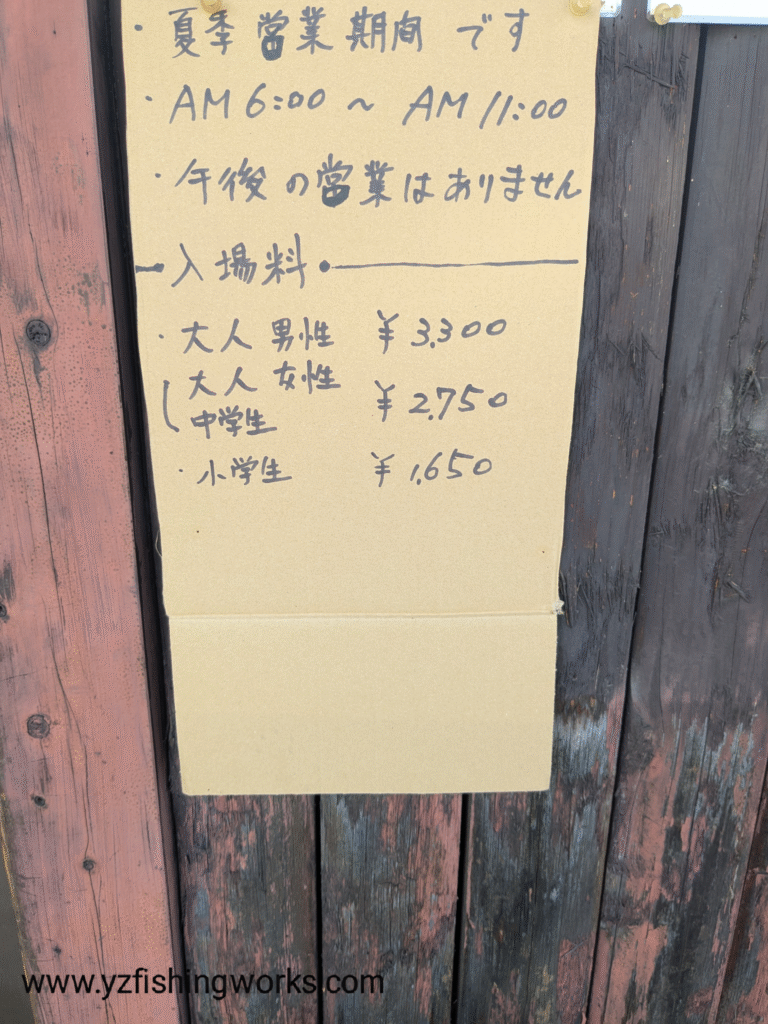 ・夏季営業期間 です
・AM 6:00 ~ AM 11:00
・午後の営業はありません
入場料
・大人 男性 ¥3,300
大人 女性
中学生 ¥2,750
・小学生 ¥1,650
www.yzfishingworks.com